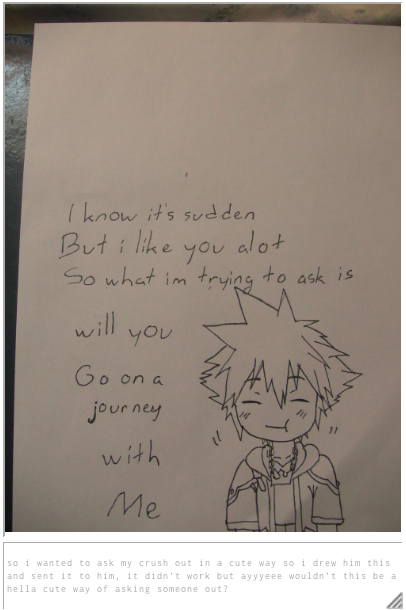 I know it's sudden
But i like you alot
So what im trying to ask is
will you
Go on a
journey
with
Me
so i wanted to ask my crush out in a cute way so i drew him this
and sent it to him, it didn't work but ayyyeee wouldn't this be a
hella cute way of asking someone out?